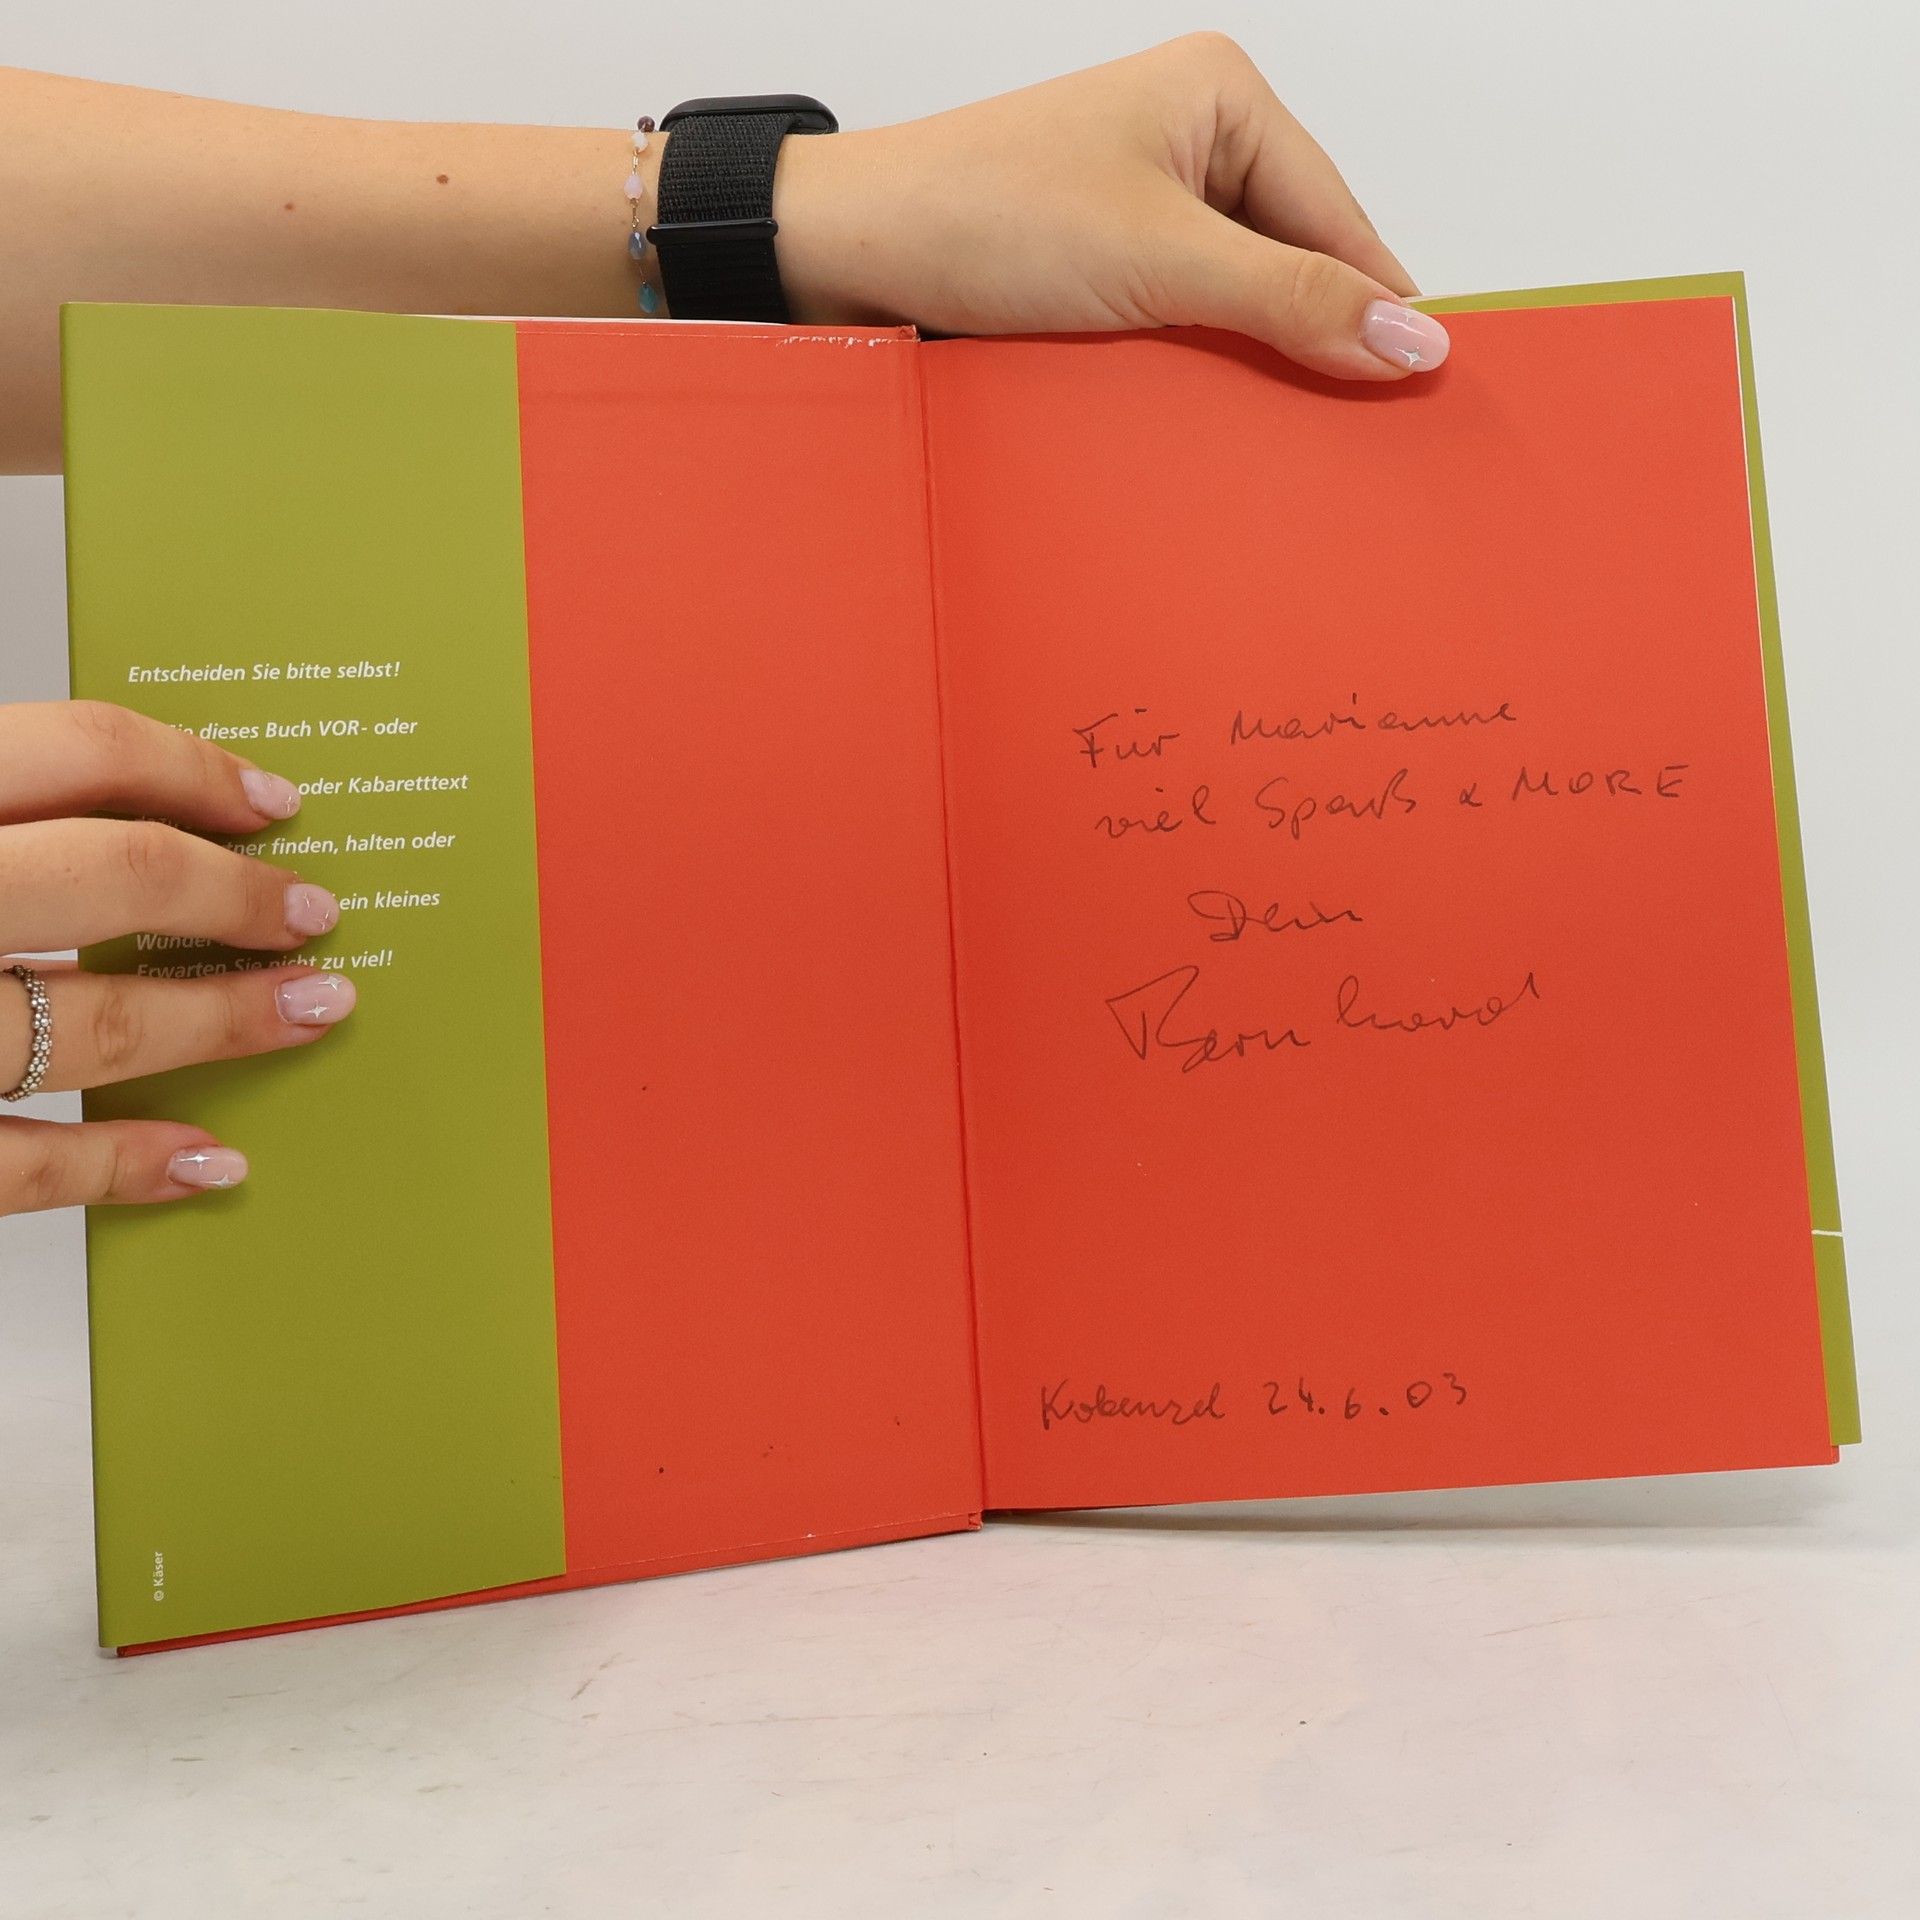 Entscheiden Sie bitte selbst!
Sie dieses Buch VOR- oder
oder Kabaretttext
finden, halten oder
ein kleines
Wunder
Erwarten Sie nicht zu viel!
© Käser
Für Marianne
viel Spaß & MORE
Dein
Bernhard
Kobenzel 24.6.03